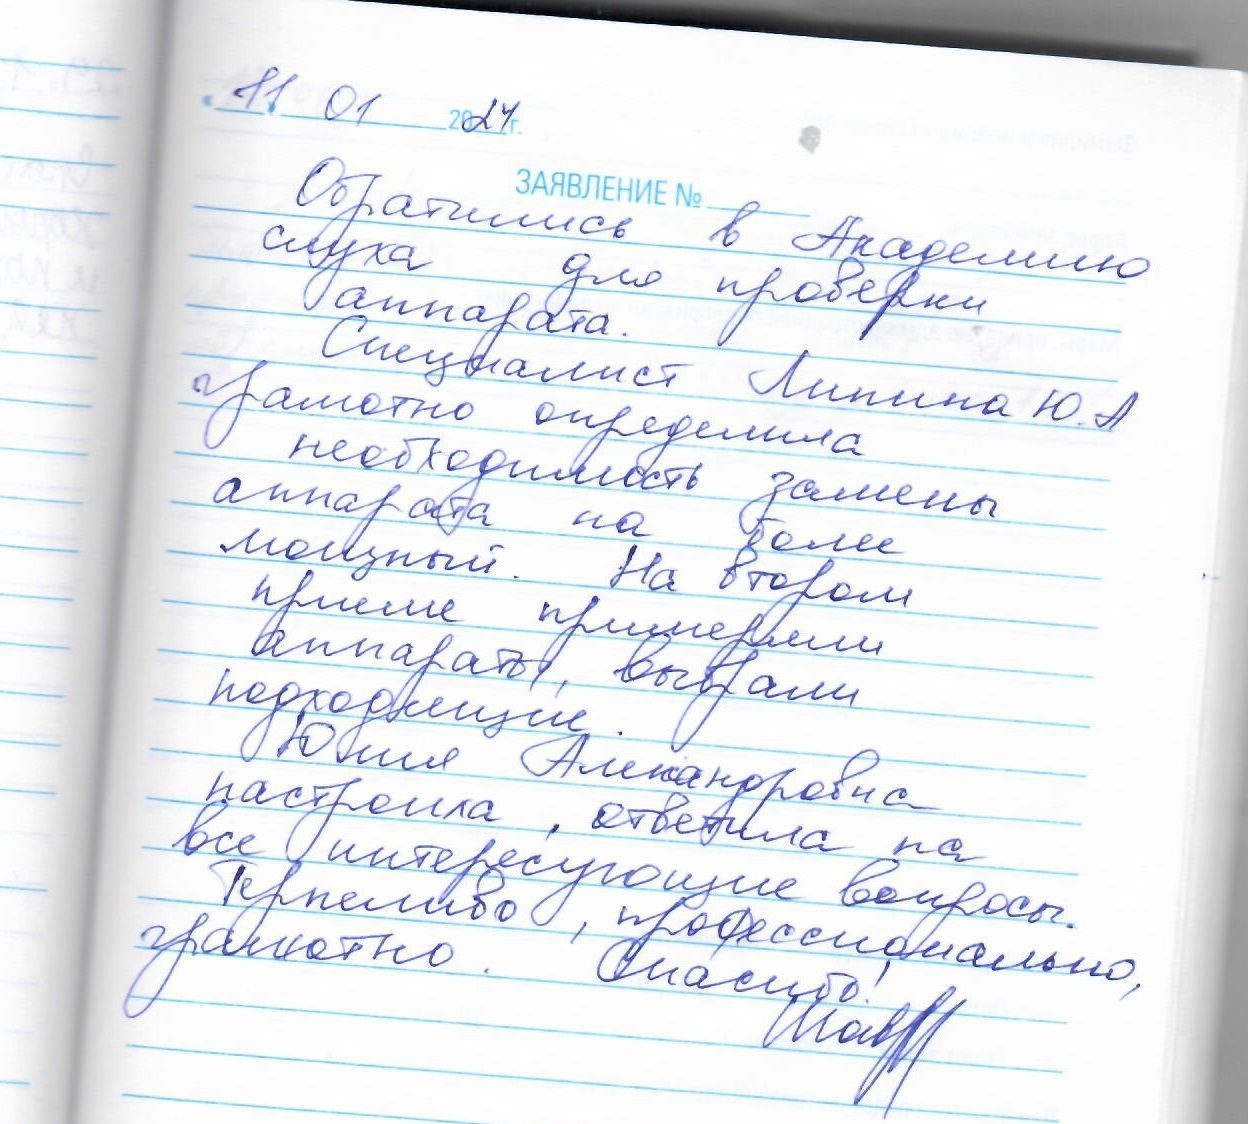 «11» 01 2024 г.
ЗАЯВЛЕНИЕ №
Обратились в Академию
слуха для проверки
аппарата.
Специалист Липина Ю.А
грамотно определила
необходимость замены
аппарата на более
мощный. На втором
приеме примеряли
аппараты, выбрали
подходящие.
Юлия Александровна
настроила, ответила на
все интересующие вопросы.
Терпеливо, профессионально,
грамотно. Спасибо!